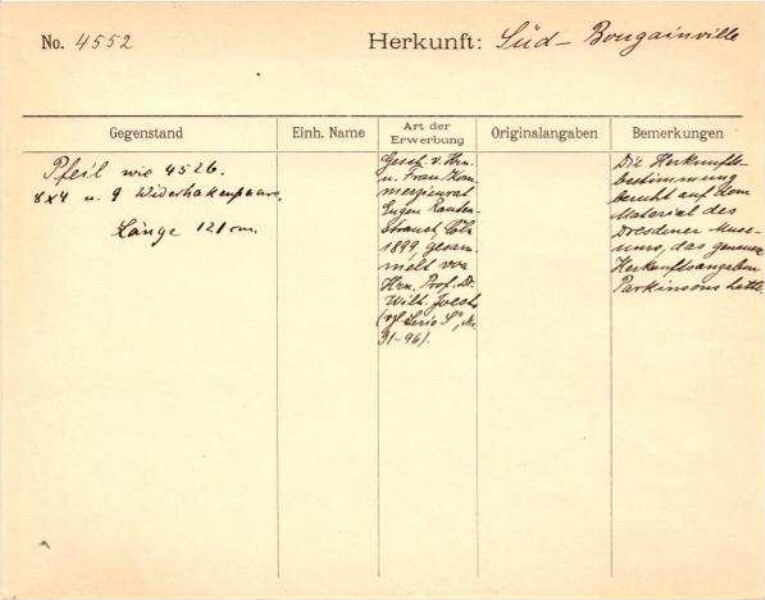 No. 4552
Herkunft: Süd-Bougainville
Gegenstand
Einh. Name
Art der
Erwerbung
Originalangaben
Bemerkungen
Pfeil wie 4526.
8x4 u. 9 Widerhakenpaare.
Länge 121 cm.
Gesch. v. Hrn.
u. Frau Kom
merzienrat
Eugen Rauten-
strauch, Cöln
1899, gesam
melt von
Hrn. Prof. Dr.
Wilh. Joest
(vgl. Serie S", Nr.
31-96).
Die Herkunfts-
bestimmung
beruht auf dem
Material des
Dresdener Muse-
ums, das genauere
Herkunftsangaben
Parkinsons hatte.